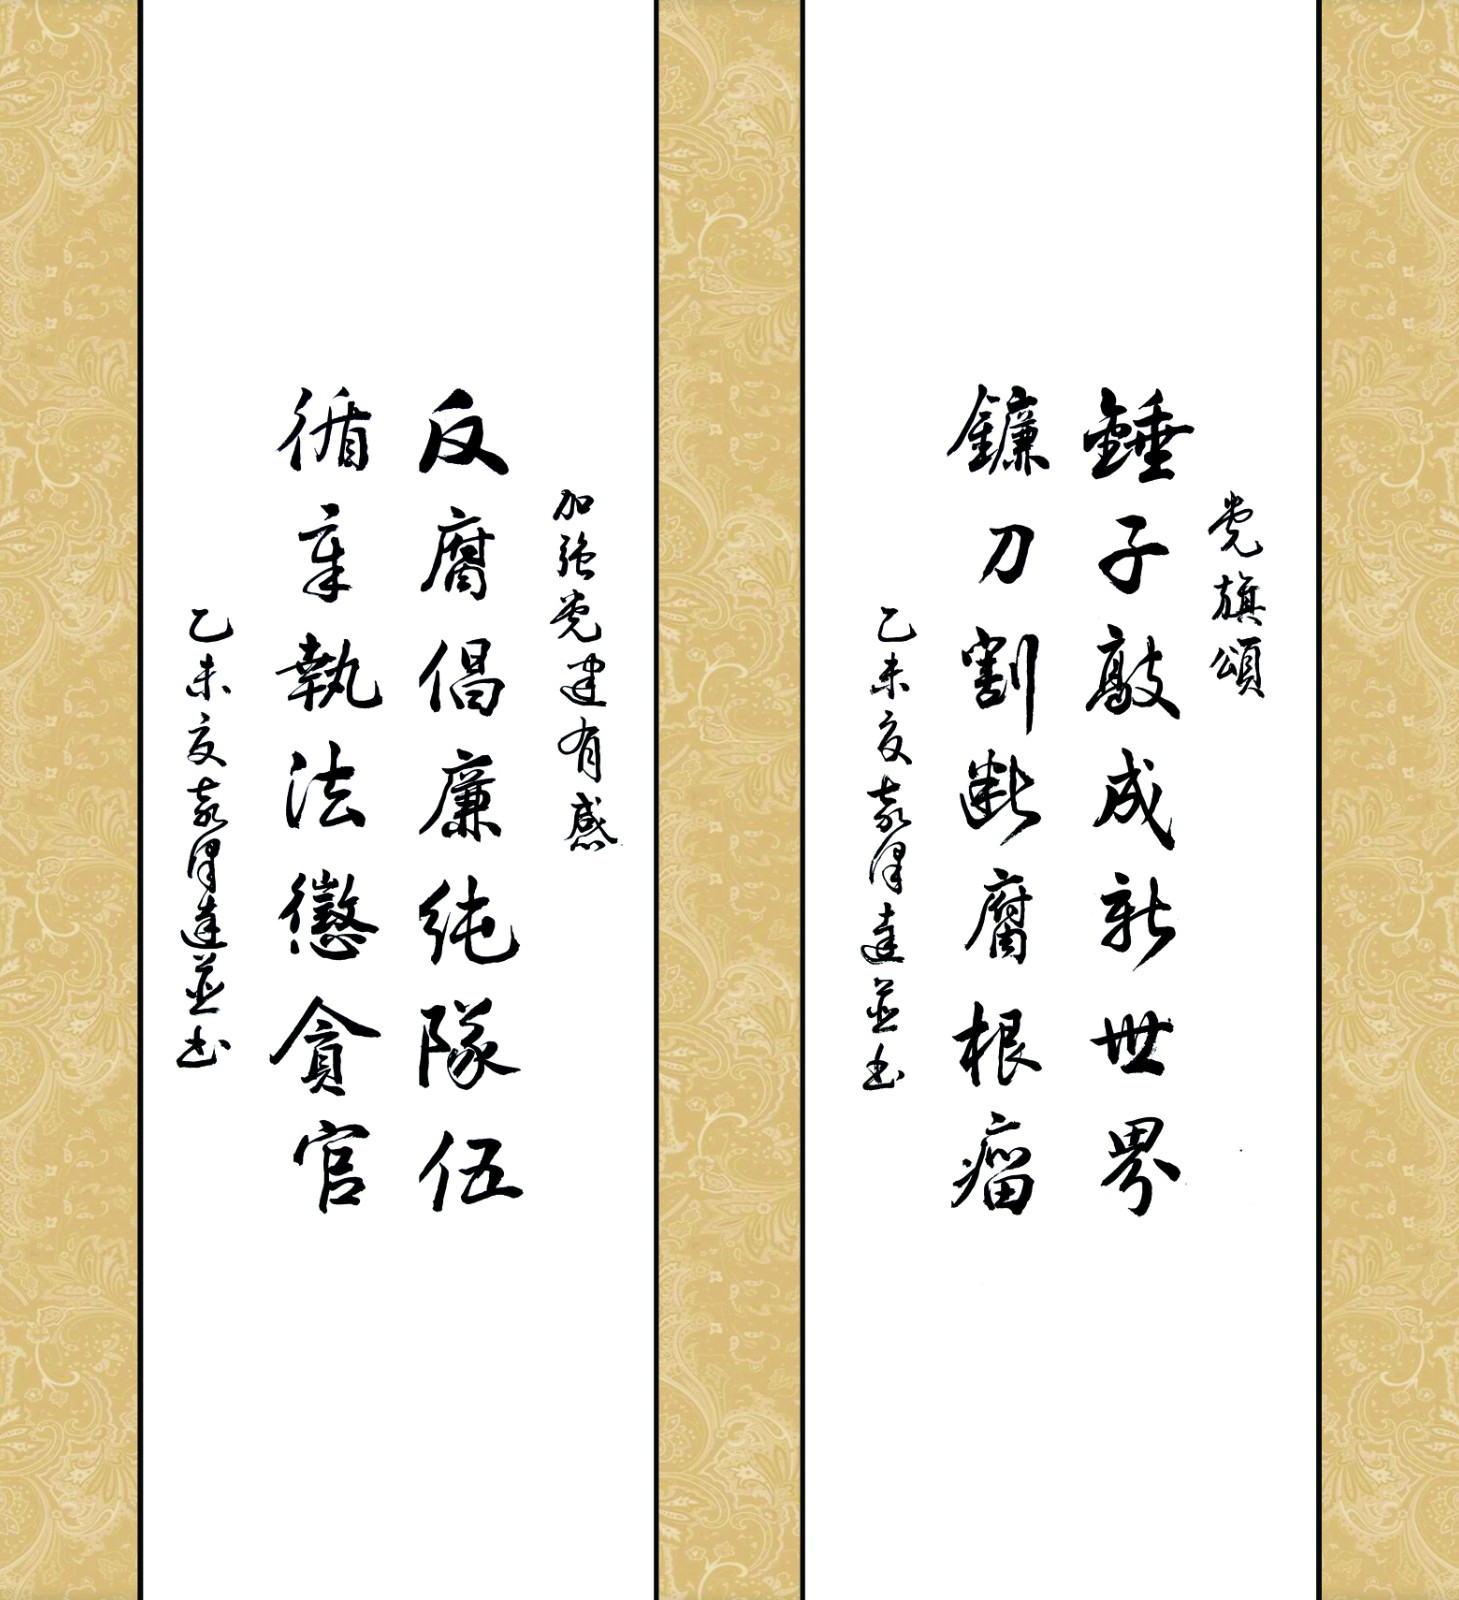 党旗頌
錘子敲成新世界
鐮刀割断腐根瘤
乙未夏袁澤達並书
加強党建有感
反腐倡廉純隊伍
循章執法懲貪官
乙未夏袁澤達並书